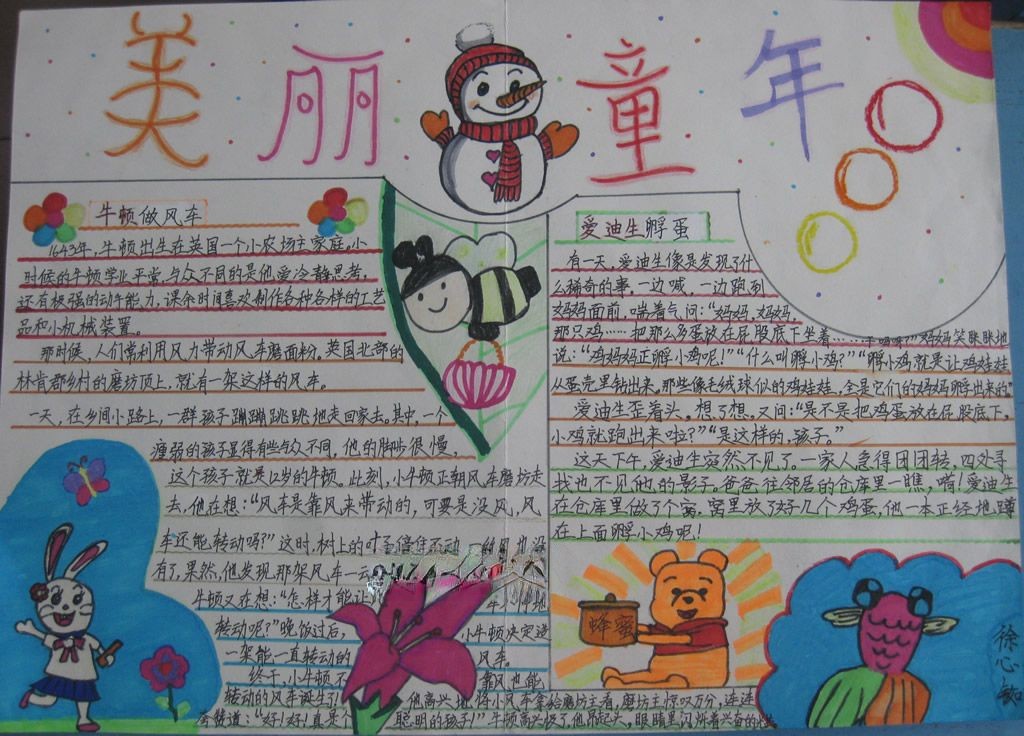 美丽童年
牛顿做风车
1643年,牛顿出生在英国一个小农场主家庭,小
时候的牛顿学业平常,与众不同的是他爱冷静思考,
还有极强的动手能力,课余时间喜欢制作各种各样的工艺
品和小机械装置。
那时候,人们常利用风力带动风车磨面粉。英国北部的
林肯郡乡村的磨坊顶上,就有一架这样的风车。
一天,在乡间小路上,一群孩子蹦蹦跳跳地走回家去。其中,一个
瘦弱的孩子显得有些与众不同,他的脚步很慢,
这个孩子就是12岁的牛顿。此刻,小牛顿正朝风车磨坊走
去,他在想:“风车是靠风来带动的,可要是没风,风
车还能转动吗?”这时,树上的叶子
有了,果然,他发现,那架风车一
牛顿又在想:“怎样才能让
转动呢?”晚饭过后,小牛顿决定造
一架能一直转动的风车。
终于,小牛顿不靠风也能
转动的风车诞生了!他高兴地将小风车拿给磨坊主看,磨坊主惊叹万分,连连
夸赞道:“好!好!真是个聪明的孩子!”牛顿高兴极了,他昂起头,眼睛里闪烁着兴奋的
爱迪生孵蛋
有一天,爱迪生像是发现了什
么稀奇的事,一边喊,一边跑到
妈妈面前,喘着气问:“妈妈,妈妈,
那只鸡……把那么多蛋放在屁股底下坐着……干吗呀?”妈妈笑眯眯地
说:“鸡妈妈正孵小鸡呢!”“什么叫孵小鸡?”“孵小鸡就是让鸡娃娃
从蛋壳里钻出来,那些像毛绒球似的鸡娃娃,全是它们的妈妈孵出来的”
爱迪生歪着头,想了想,又问:“是不是把鸡蛋放在屁股底下,
小鸡就跑出来啦?”“是这样的,孩子。”
这天下午,爱迪生突然不见了。一家人急得团团转,四处寻
找也不见他的影子。爸爸往邻居的仓库里一瞧,嗬!爱迪生
在仓库里做了个窝,窝里放了好几个鸡蛋,他一本正经地蹲
在上面孵小鸡呢!
蜂蜜
徐心